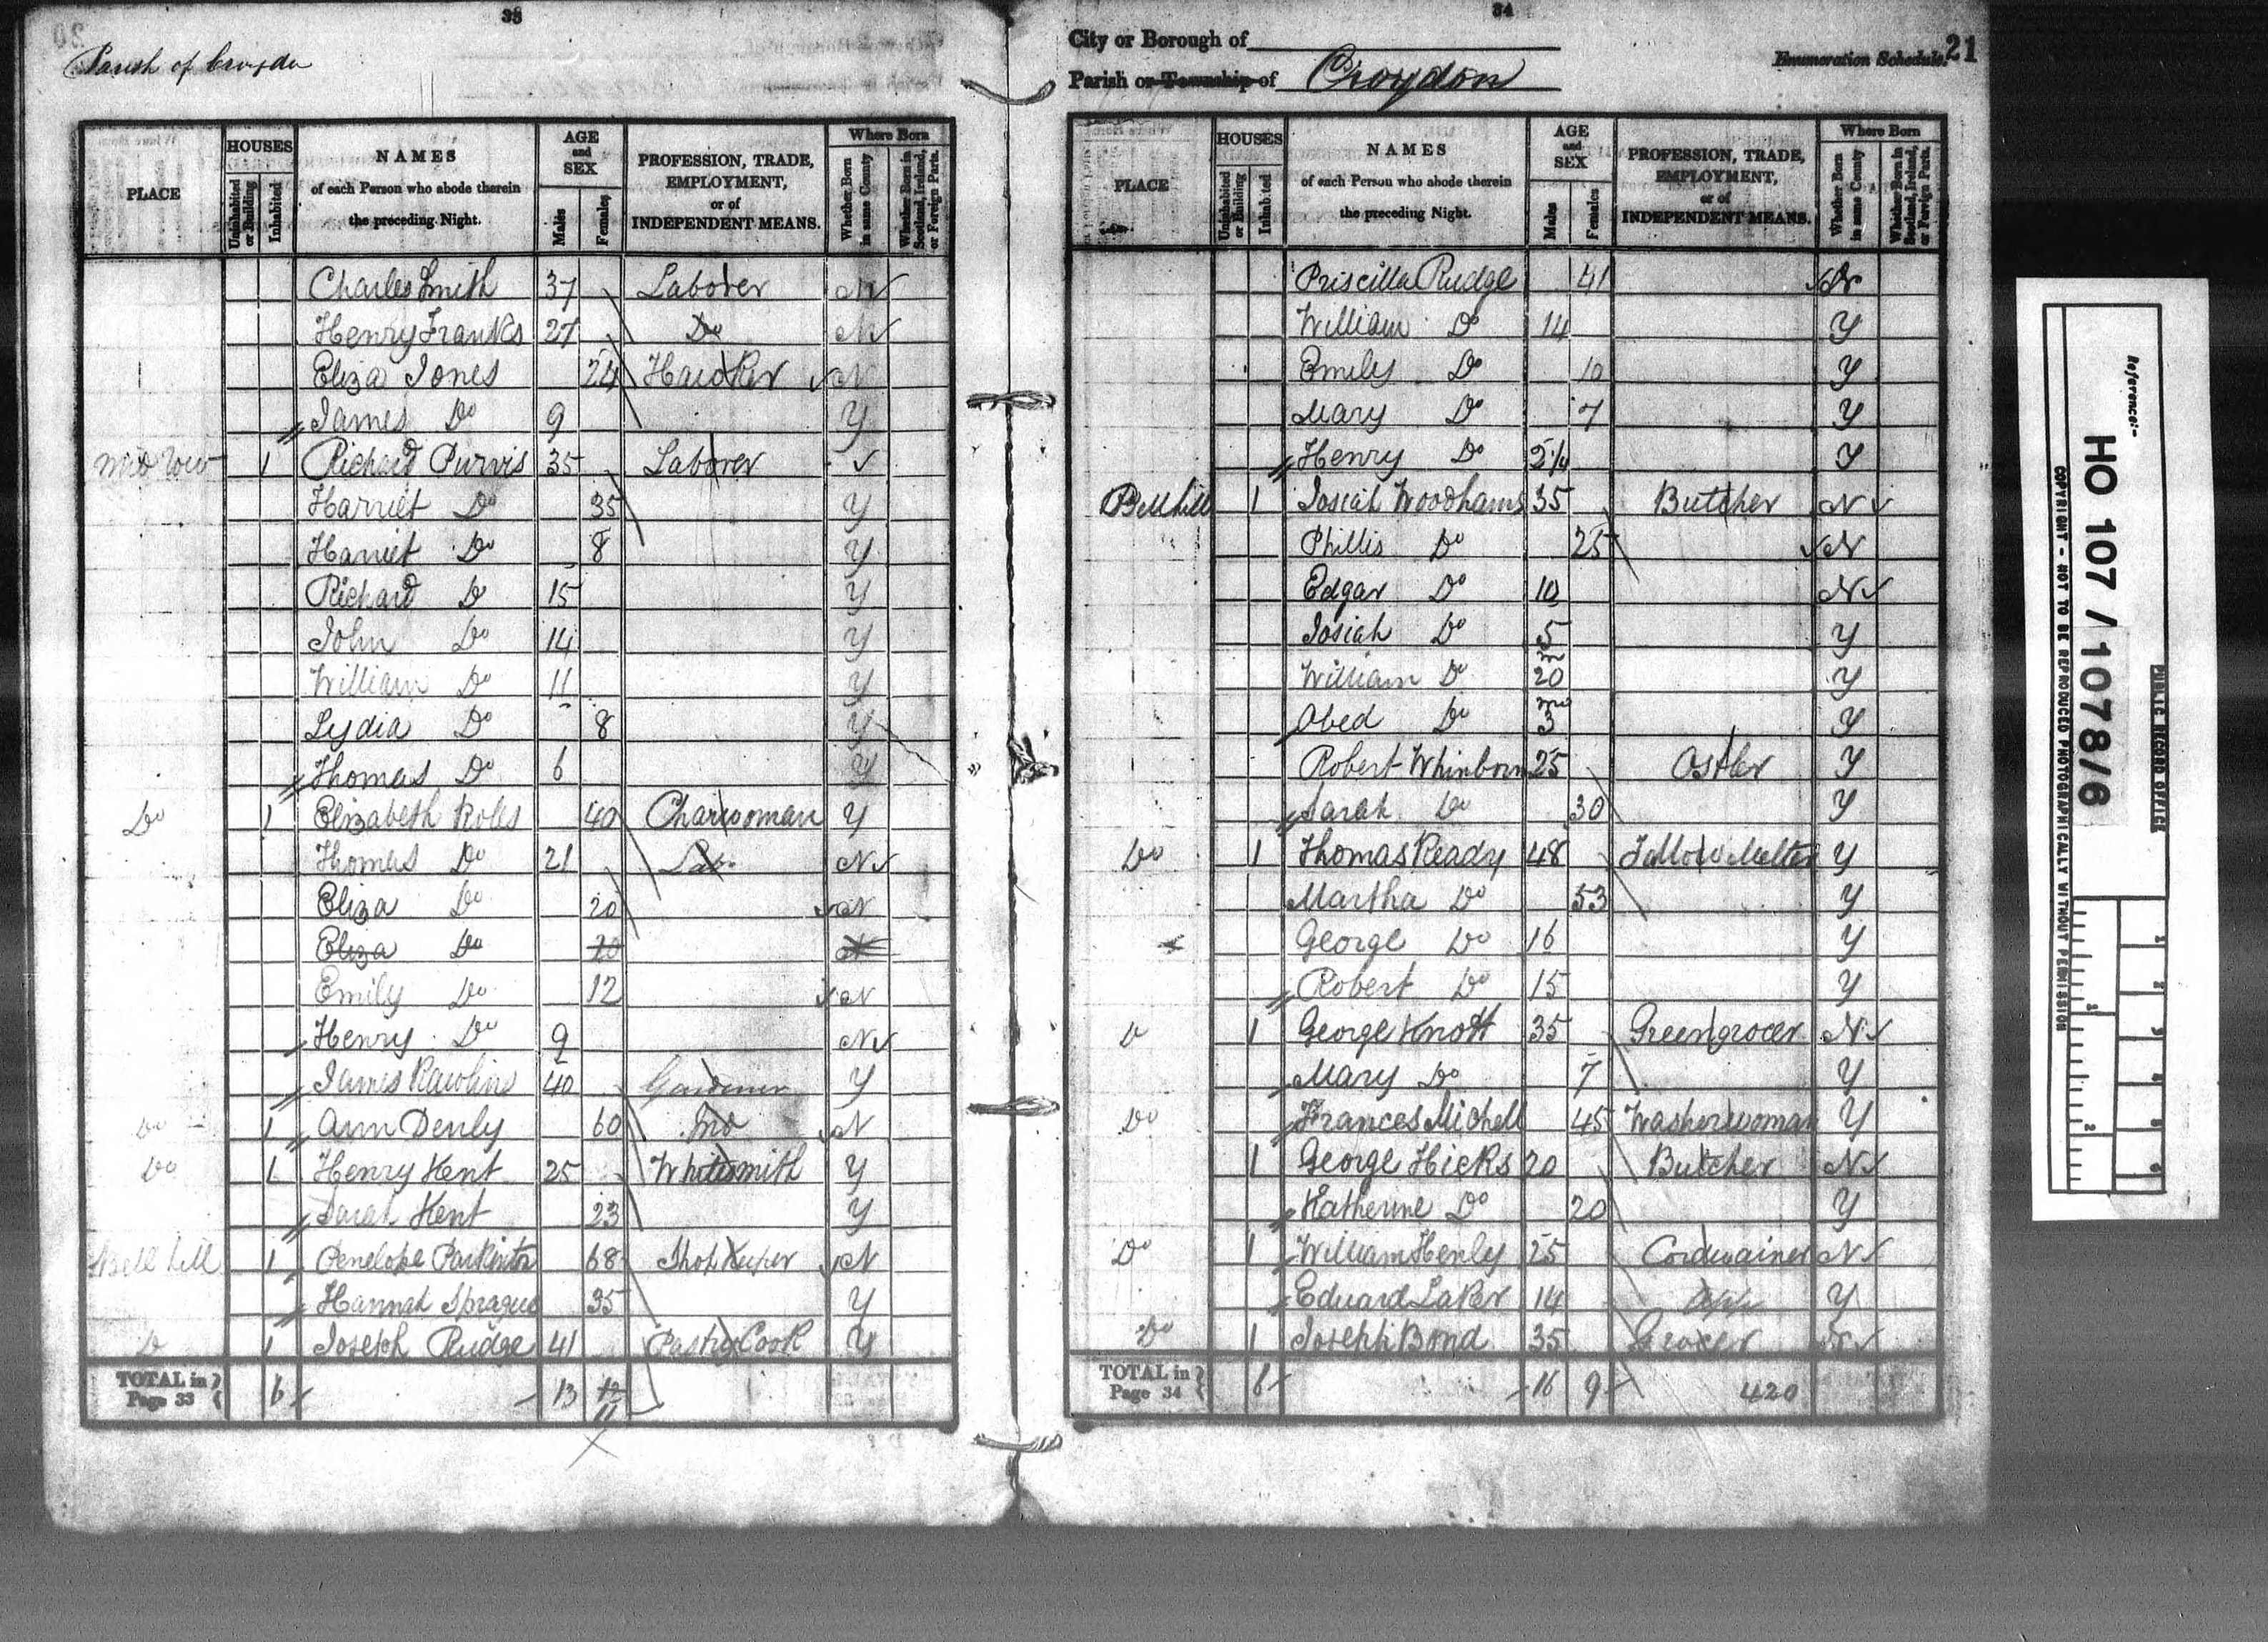 33
Parish of Croydon
PLACE
HOUSES
Uninhabited or Building
Inhabited
NAMES
of each Person who abode therein
the preceding Night.
AGE
and
SEX
Males
Females
PROFESSION, TRADE,
EMPLOYMENT,
or of
INDEPENDENT MEANS.
Where Born
Whether Born in same County
Whether Born in Scotland, Ireland, or Foreign Parts.
Charles Smith 37 Laborer N
Henry Franks 27 Do N
Eliza Jones 24 Hawker N
James Do 9 Y
Mid row 1 Richard Purvis 35 Laborer
Harriet Do 35 Y
Harriet Do 8 Y
Richard D 15 Y
John Do 14 Y
William Do 11 Y
Lydia Do 8 Y
Thomas Do 6 Y
Do 1 Elizabeth Roles 40 Charwoman Y
Thomas Do 21 Lab N
Eliza Do 20 N
Eliza Do 20 N
Emily Do 12 N
Henry Do 9 N
James Rawlins 40 Gardener Y
Do 1 Ann Denly 60 Ind N
Do 1 Henry Kent 25 Whitesmith Y
Sarah Kent 23 Y
Bell hill 1 Penelope Parkinton 68 Shop Keeper N
Hannah Sprague 35 Y
D 1 Joseph Rudge 41 Pastry Cook Y
TOTAL in
Page 33
6 13 12
11
34
City or Borough of
Parish or Township of Croydon
Enumeration Schedule. 21
PLACE
HOUSES
Uninhabited or Building
Inhabited
NAMES
of each Person who abode therein
the preceding Night.
AGE
and
SEX
Males
Females
PROFESSION, TRADE,
EMPLOYMENT,
or of
INDEPENDENT MEANS.
Where Born
Whether Born in same County
Whether Born in Scotland, Ireland, or Foreign Parts.
Priscilla Rudge 41 N
William Do 14 Y
Emily Do 10 Y
Mary Do 7 Y
Henry Do 2 1/4 Y
Bell hill 1 Josiah Woodhams 35 Butcher N
Phillis Do 25 N
Edgar Do 10 N
Josiah Do 5 Y
William Do 20 Y
Obed Do 3 mo Y
Robert Whinborn 25 Ostler Y
Sarah Do 30 Y
Do 1 Thomas Ready 48 Tallow Melter Y
Martha Do 53 Y
George Do 16 Y
Robert Do 15 Y
D 1 George Knott 35 Greengrocer N
Mary Do 7 Y
Do Frances Michell 45 Washerwoman Y
1 George Hicks 20 Butcher N
Katherine Do 20 Y
Do 1 William Henly 25 Cordwainer N
Edward Laker 14 App Y
Do 1 Joseph Bond 35 Grocer N
TOTAL in
Page 34
6 16 9 420
Reference:-
HO 107/1078/6
PUBLIC RECORD OFFICE
COPYRIGHT - NOT TO BE REPRODUCED PHOTOGRAPHICALLY WITHOUT PERMISSION